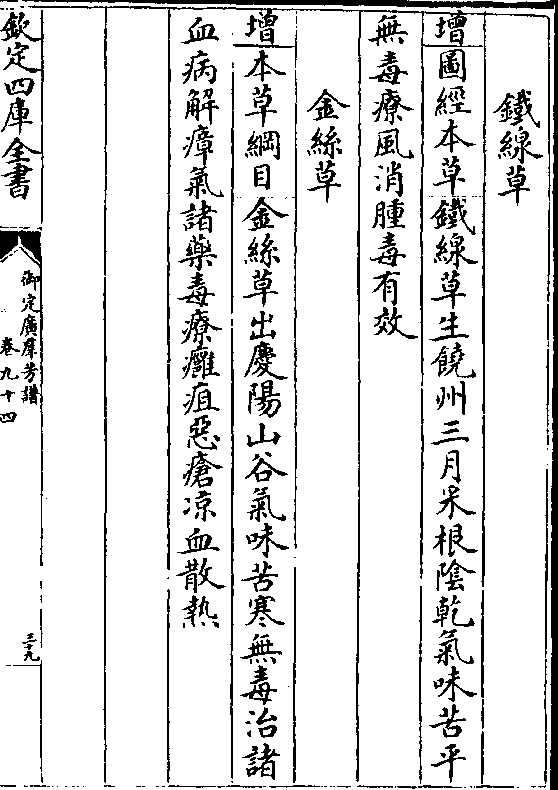 鐵線草
增圖經本草鐵線草生饒州三月采根陰乾氣味苦平
無毒療風消腫毒有效
金絲草
增本草綱目金絲草出慶陽山谷氣味苦寒無毒治諸
血病解瘴氣諸藥毒療癰疽惡瘡凉血散熱
欽定四庫全書
御定廣羣芳譜
卷九十四
三十九